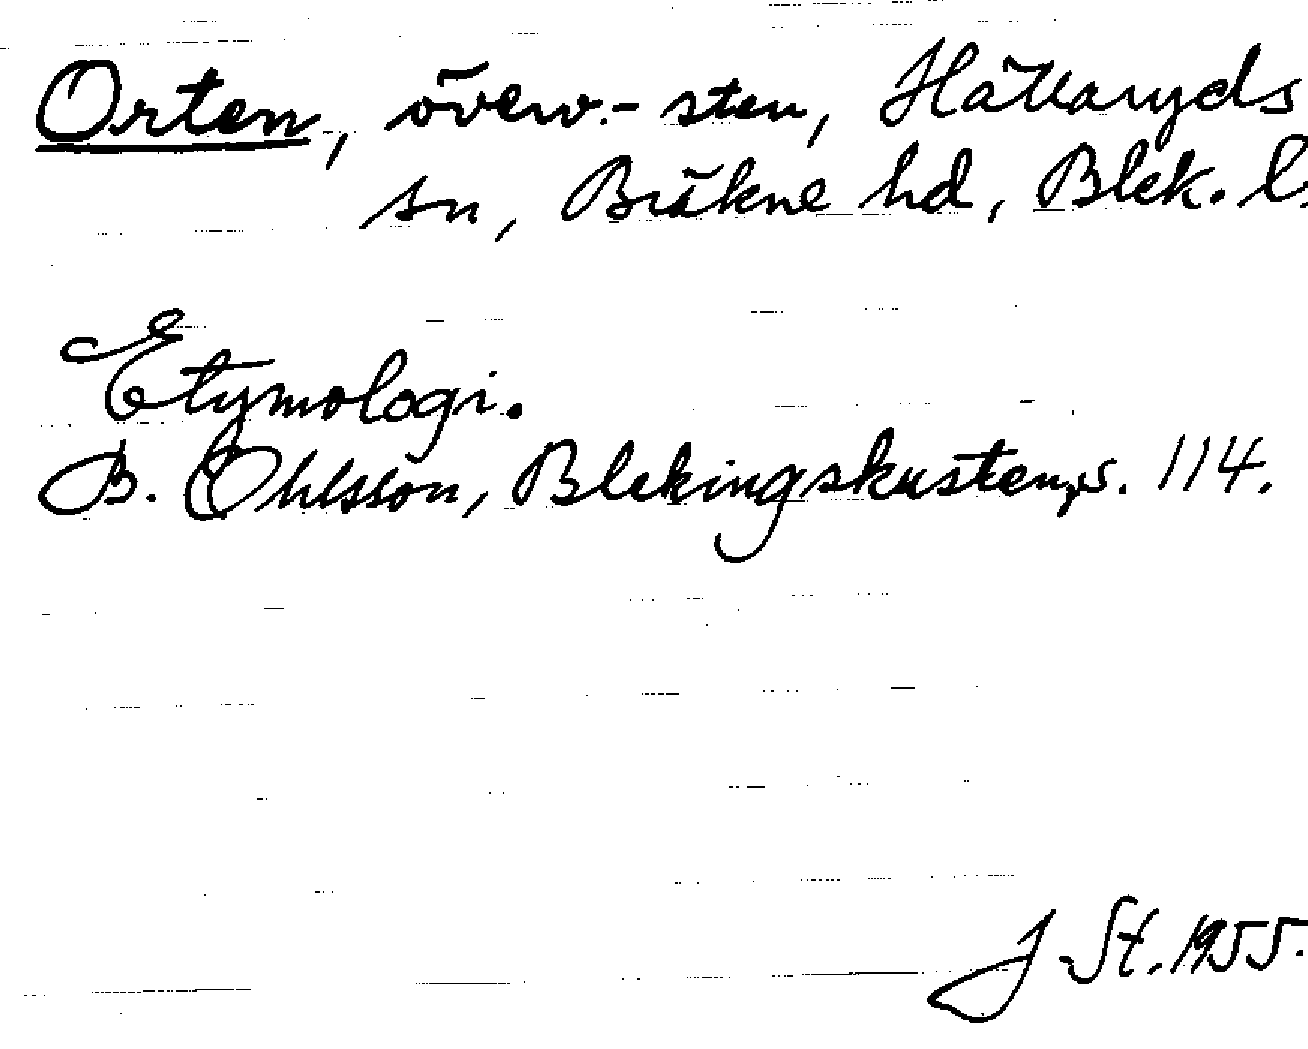 Orten, överv.- sten, Hällaryds
sn, Bräkne hd, Blek. l.
Etymologi.
B. Ohlsson, Blekingskusten, s. 114.
J. St. 1955.